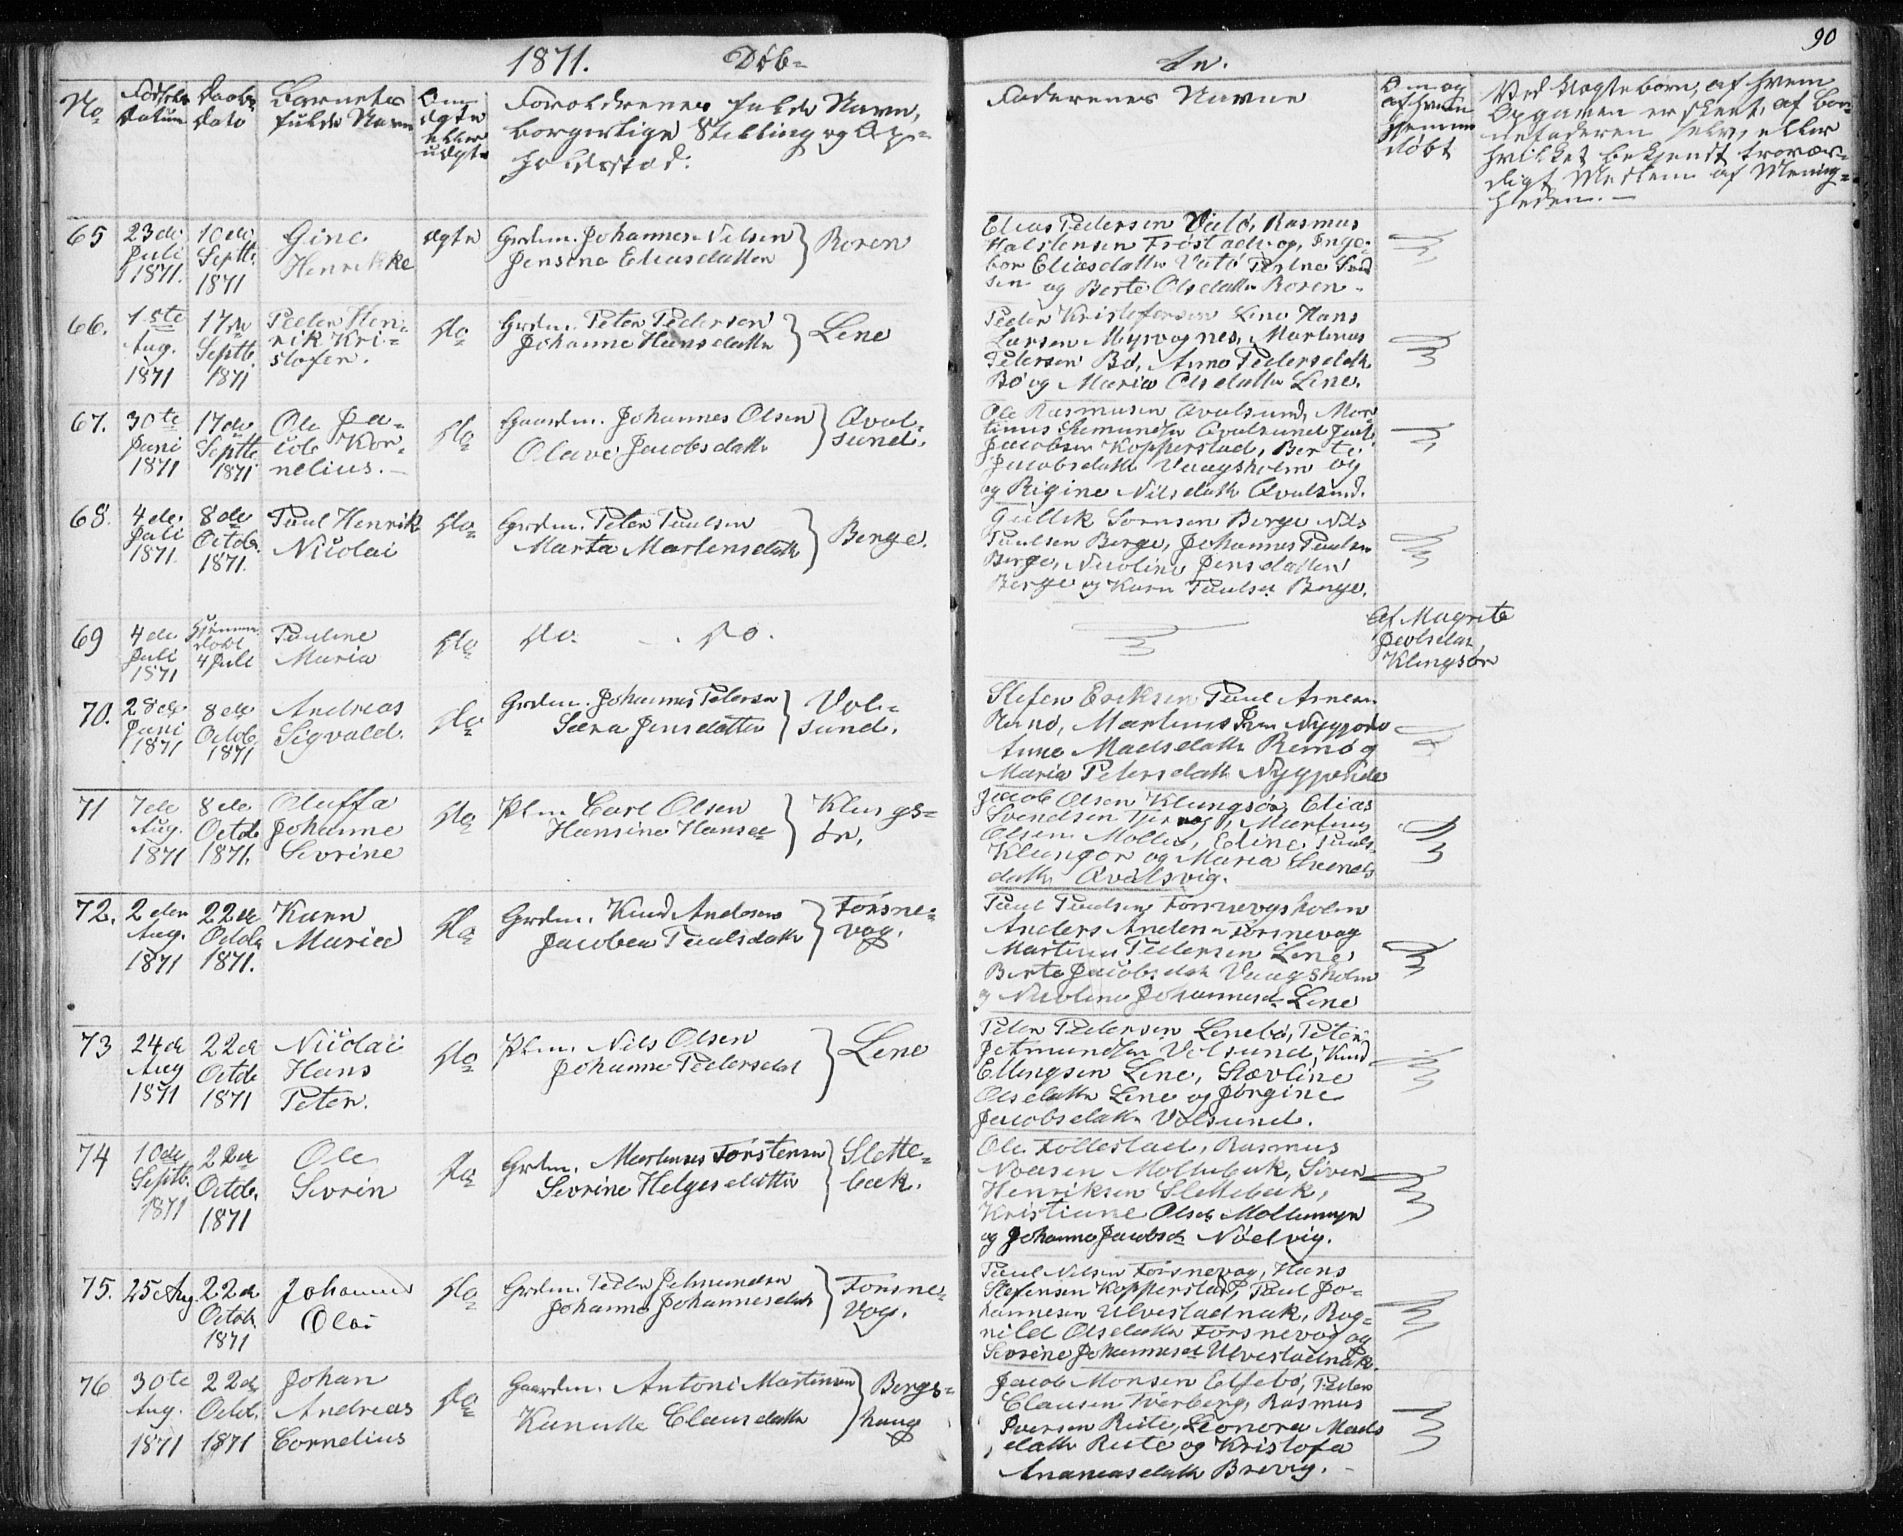 1871. Døb-
te. 90
No
Fødsels
Datum
Daabs
Dato
Barnets
fulde Navn
Om
ægte
eller
uægte
Forældrenes fulde Navn,
borgerlige Stilling og Op-
holdssted.
Faderenes Navne
Om og
af hvem
hjemme
døbt
Ved uægte børn, af hvem
Opgaven er skeet, af bar-
nefaderen selv, eller
hvilket bekjendt trovær-
digt Medlem af Menig-
heden.
65 23de Juli 1871. 10de Septb. 1871 Gine Henrikke ægte Grdm. Johannes Nilsen Jensine Eliasdatter } Roren
Elias Pedersen Vatø, Rasmus
Halstensen Frøstad og Inge-
bor Eliasdatter Vatø
og Berte Olsdatter Roren.
66. 1ste Aug. 1871 17de Septb. 1871 Peder Hen-
rik Kri-
stofer. do Grdm. Peter Pedersen Johanne Hansdatter } Lene
Peder Kristofersen Lene Hans
Larsen Myrvognes, Martinus
Petersen Bø, Anne Pedersdatter
Bø og Maria Olsdatter Lene.
67. 30te Juni 1871 17de Septb. 1871 Ole Ja-
cob Kor-
nelius. do Gaardm. Johannes Olsen Olave Jacobsdatter } Qval-
sund.
Ole Rasmusen Qvalsund, Mar
tinus Qvalsund
Jacobsen Kopperstad, Berte
Jacobsdatter Vaagsholm og
og Rigine Nilsdatter Qvalsund.
68. 4de Juli 1871. 8de Octob. 1871. Paul Henrik
Nicolai do Grdm. Peter Paulsen Marta Martensdatter } Berge
Gullik Sørnsen Berge Nils
Paulsen Berge, Johannes Paulsen
Berge, Nicoline Jensdatter
Berge og Karn Paulsd Berge.
69 4de Juli 1871 Hjemme
døbt
4 Juli Pauline
Maria do do. do.
Af Magrete
Klungsør
70. 28de Juni 1871 8de Octob 1871 Andreas
Sigvald. do Grdm. Johannes Petersen Særa Jensdatter } Vol-
sund.
Stefen Eriksen Paul Arnesen
Remø, Martinus
Anne Madsdatter Remø og
Maria Petersdatter
71 7de Aug. 1871 8de Octob 1871. Oluffa
Johanne
Sevrine do Plm. Carl Olsen Hansine Hansd } Klungs-
ør.
Jacob Olsen Klungsør, Elias
Svendsen Martinus
Olsen Eline Pauls
Klungør og Maria Svends
datter Qvalsvig.
72. 2den Aug. 1871 22de Octob 1871. Karn
Maria do Grdm. Knud Andersen Jacobea Paulsdatter } Torsne-
vog.
Paul Paulsen Torsnevogsholm
Anders Andersen Torsnevog
Martinus Pedersen Lene
Berte Jacobsdatter Vaagsholm
og Nicoline Johannesd Lene
73 24de Aug 1871 22de Octob 1871 Nicolai
Hans
Peter. do Plm. Nils Olsen Johanne Pedersdat } Lene
Peter Pedersen Lenebø, Peter
Jetmundsen Volsund, Knud
Ellingsen Lene, Stævline
Olsdatter Lene og Jørgine
Jacobsdatter Volsund.
74 10de Septb. 1871 22de Octob. 1871 Ole
Sevrin do Grdm. Martinus Torstensen Sevrine Helgesdatter } Slette-
bak.
Ole Follestad, Rasmus
Siver
Henriksen Slettebak,
Kristiane Olsd Mollemyr
og Johanna Jacobsd
75. 25 Aug 22de Octob. 1871 Johannes
Olai do Grdm. Peder Jetmundsen Johanne Johannesdat } Torsne-
vog.
Paul Nilsen Torsnevog, Hans
Stefensen Kopperstad, Paul Jo-
hannesen Ulvestadnak, Rag-
nild Olsdatter Torsnevog og
Sevrine Johannesd Ulvestadnak.
76 30te Aug. 1871 22de Octb. 1871 Johan
Andreas
Cornelius do Gaardm. Antoni Martensen Kanutte Clausdatter } Bergs-
haug
Jacob Monsen Ellebø, Peder
Clausen Tverberg, Rasmus
Iversen Rute, Leonora Mads
datter Rute og Kristofa
Ananiasdatter Brevig.